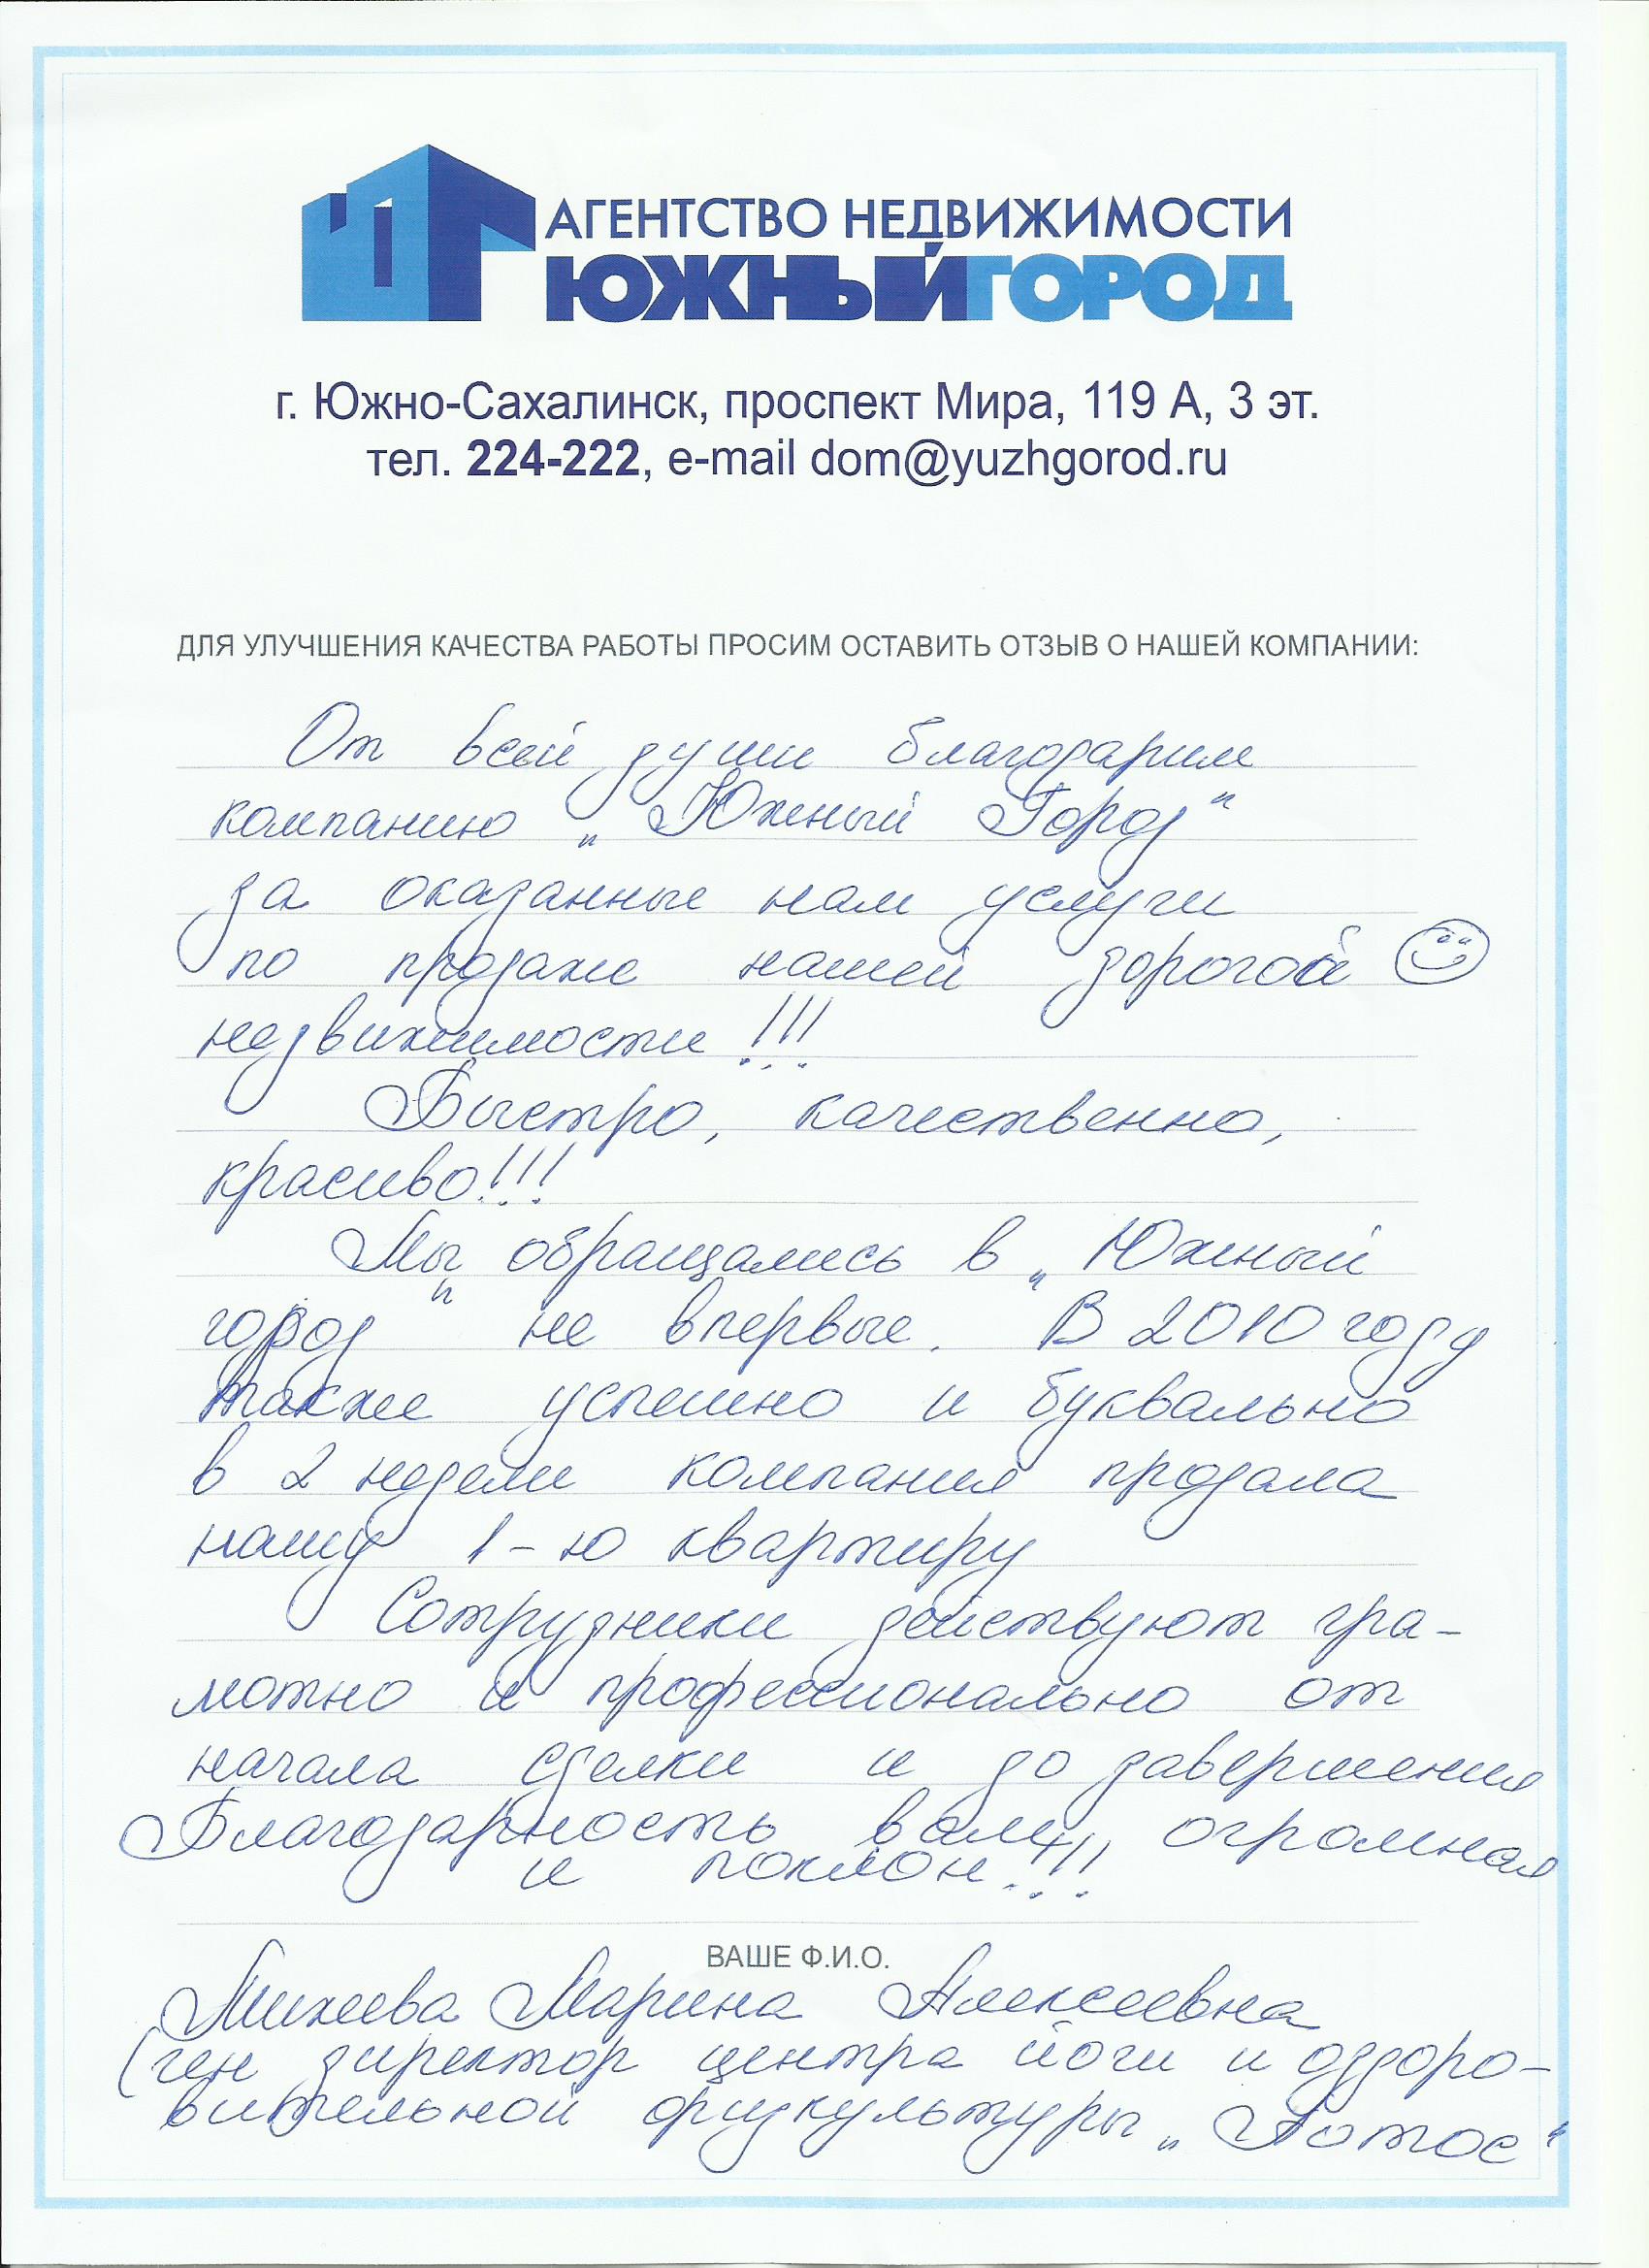 АГЕНТСТВО НЕДВИЖИМОСТИ
ЮЖНЫЙГОРОД
г. Южно-Сахалинск, проспект Мира, 119 А, 3 эт.
тел. 224-222, e-mail dom@yuzhgorod.ru
ДЛЯ УЛУЧШЕНИЯ КАЧЕСТВА РАБОТЫ ПРОСИМ ОСТАВИТЬ ОТЗЫВ О НАШЕЙ КОМПАНИИ:
От всей души благодарим
компанию „Южный Город"
за оказанные нам услуги
по продаже нашей дорогой
недвижимости!!!
Быстро, качественно,
красиво!!!
Мы обращались в „Южный
город" не впервые. В 2010 году
также успешно и буквально
в 2 недели компания продала
нашу 1-ю квартиру
Сотрудники действуют гра-
мотно и профессионально от
начала сделки и до завершения
Благодарность вам огромная
и поклон!!!
ВАШЕ Ф.И.О.
Михеева Марина Алексеевна
(ген директор центра йоги и оздоро-
вительной физкультуры „Лотос"